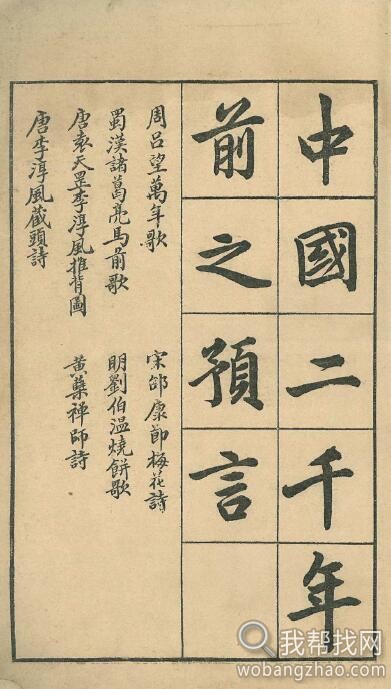 中國二千年
前之預言
周呂望萬年歌
蜀漢諸葛亮馬前歌
唐袁天罡李淳風推背圖
唐李淳風藏頭詩
宋邵康節梅花詩
明劉伯温燒餅歌
黃蘗禪師詩
我帮找网
wobangzhao.com